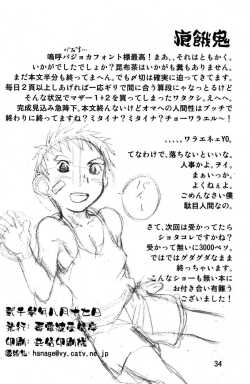 痕餓鬼
嗚呼バジョカフォント様最高！まあ、それはともかく。
いかがでしたでしょか？昆布茶はいかがも糞もありません。
まだ本文半分も終ってまへん。でも〆切は確実に迫ってきてます。
毎日２頁以上しあげれば一応ギリで間に合う算段になっとるけど
そんな状況でマザー１＋２を買ってしまったワタクシ。えへへ。
完成見込み危急降下。本文終んないけどオマヘの人間性はプッチで終
わりに終ってますね？ミタイナ？ミタイナ？チョーワラエル～！
、、、、、ワラエネェYO。
てなわけで、落ちないといいな。
人事かよ。ヲイ。
まぁいっか。
よくねぇよ。
ごめんなさい僕
駄目人間なの。
さて、次回は受かってたら
ショタコレですかね？
受かって無いに3000ペソ。
ではではグダグダなまま
終っちゃいます。
こんなショーも無い本に
お付き合い有難う
ございました！
hanage@vy.catv.ne.jp
34